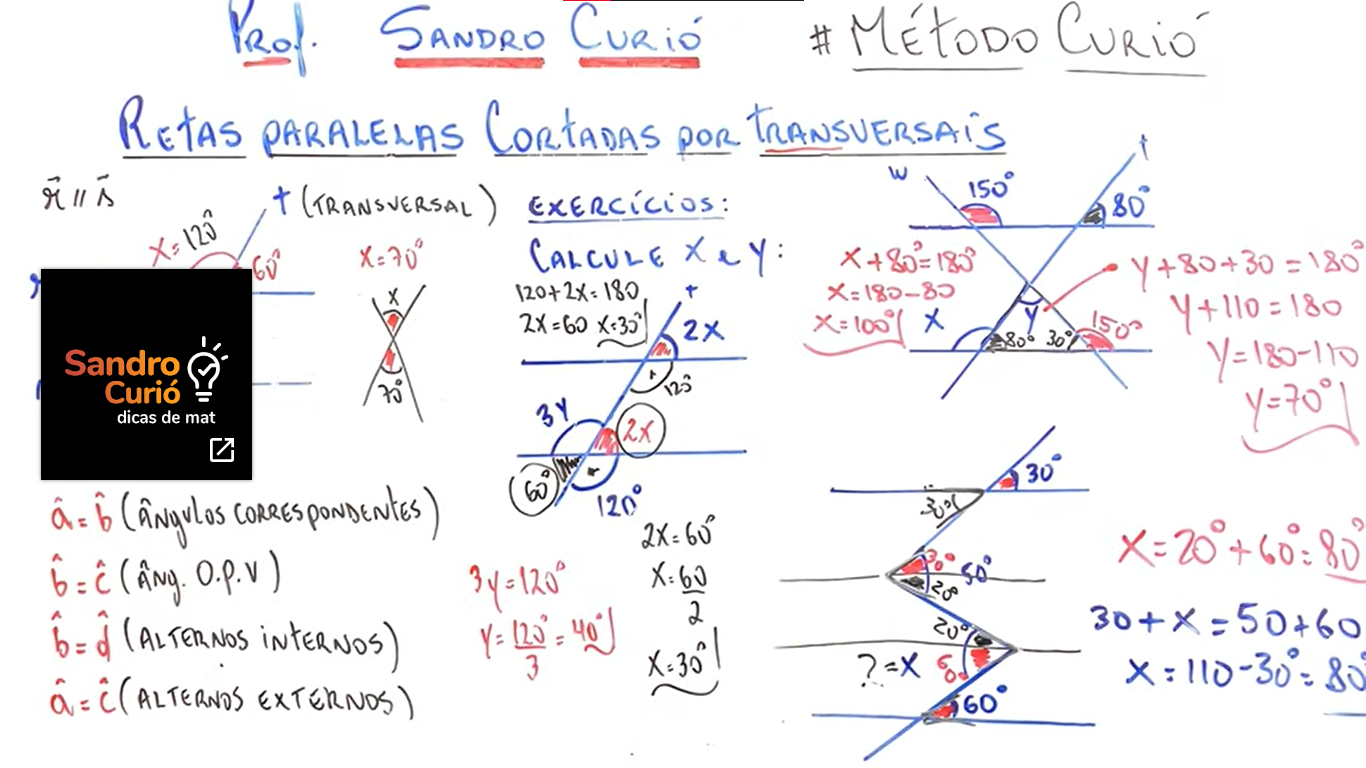 Prof. SANDRO CURIÓ # MÉTODO CURIÓ
RETAS PARALELAS CORTADAS POR TRANSVERSAIS
r // s
t (TRANSVERSAL)
X=120°
60°
X=70°
X
70°
Sandro
Curió
dicas de mat
â = b̂ (ÂNGULOS CORRESPONDENTES)
b̂ = ĉ (ÂNG. O.P.V)
b̂ = d̂ (ALTERNOS INTERNOS)
â = ĉ (ALTERNOS EXTERNOS)
EXERCÍCIOS:
CALCULE X e Y:
120+2X=180
2X=60 X=30°
t
2X
120°
3Y
2X
60°
120°
2X=60°
X=60/2
X=30°
3Y=120°
Y=120°/3=40°
W
t
150°
80°
X+80°=180°
X=180-80
X=100°
X
80°
Y
30°
150°
Y+80+30=180°
Y+110=180
Y=180-110
Y=70°
30°
30°
30°
50°
20°
20°
?=X
60°
X=20°+60°=80°
30+X=50+60
X=110-30°=80°